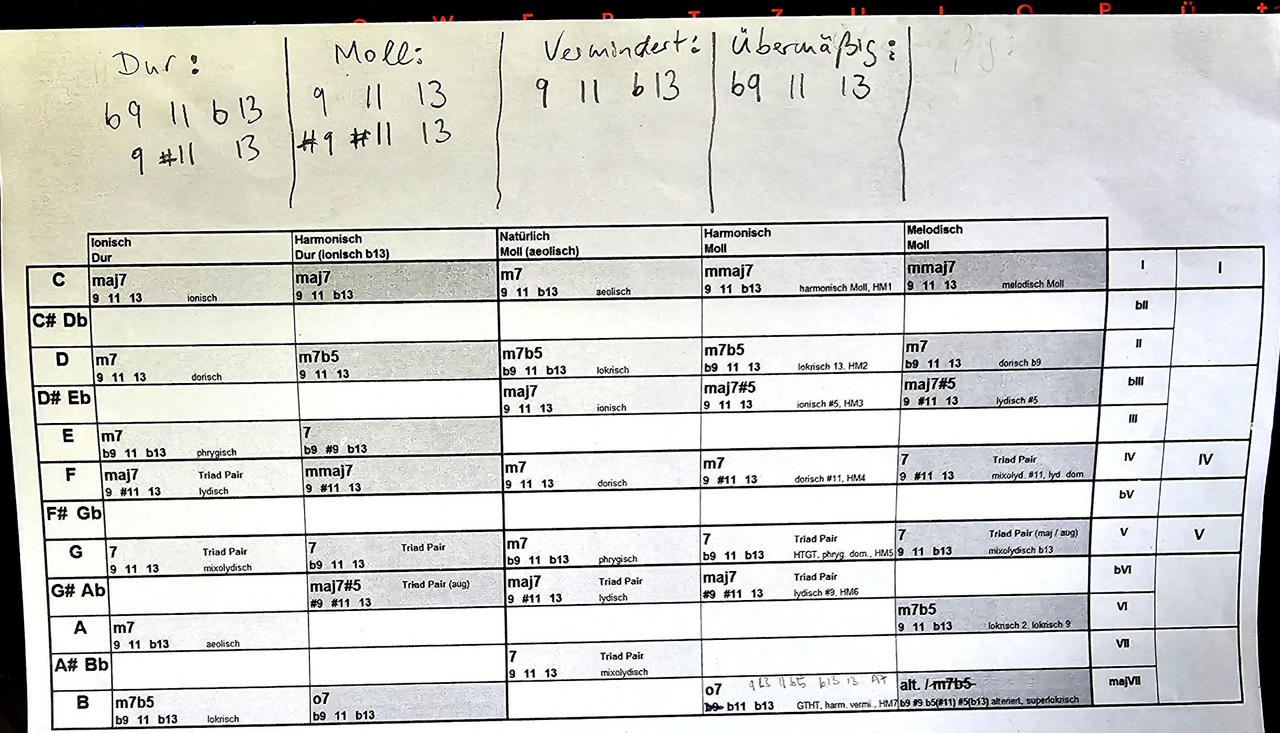 W E R T Z U I O P Ü
Dur: Moll: Vermindert: Übermäßig:
b9 11 b13 9 11 13 9 11 b13 b9 11 13
9 #11 13 #9 #11 13
Ionisch Harmonisch Natürlich Harmonisch Melodisch
Dur Dur (Ionisch b13) Moll (aeolisch) Moll Moll
C maj7 maj7 m7 mmaj7 mmaj7 I I
9 11 13 ionisch 9 11 b13 9 11 b13 aeolisch 9 11 b13 harmonisch Moll, HM1 9 11 13 melodisch Moll
C# Db bII
D m7 m7b5 m7b5 m7b5 m7 II
9 11 13 dorisch 9 11 13 b9 11 b13 lokrisch b9 11 13 lokrisch 13, HM2 b9 11 13 dorisch b9
D# Eb maj7 maj7#5 maj7#5 bIII
9 11 13 ionisch 9 11 13 ionisch #5, HM3 9 #11 13 lydisch #5
E m7 7 III
b9 11 b13 phrygisch b9 #9 b13
F maj7 Triad Pair mmaj7 m7 m7 7 Triad Pair IV IV
9 #11 13 lydisch 9 #11 13 9 11 13 dorisch 9 #11 13 dorisch #11, HM4 9 #11 13 mixolyd. #11, lyd dom
F# Gb bV
G 7 Triad Pair 7 Triad Pair m7 7 Triad Pair 7 Triad Pair (maj / aug) V V
9 11 13 mixolydisch b9 11 13 b9 11 b13 phrygisch b9 11 b13 HTGT, phryg. dom., HM5 9 11 b13 mixolydisch b13
G# Ab maj7#5 Triad Pair (aug) maj7 Triad Pair maj7 Triad Pair bVI
#9 #11 13 9 #11 13 lydisch #9 #11 13 lydisch #9, HM6
A m7 m7b5 VI
9 11 b13 aeolisch 9 11 b13 lokrisch 2, lokrisch 9
A# Bb 7 Triad Pair VII
9 11 13 mixolydisch
B m7b5 o7 o7 alt. / m7b5 majVII
b9 11 b13 lokrisch b9 11 b13 b9 b11 b13 GTHT, harm. vermi., HM7 b9 #9 b5(#11) #5(b13) alteriert, superlokrisch